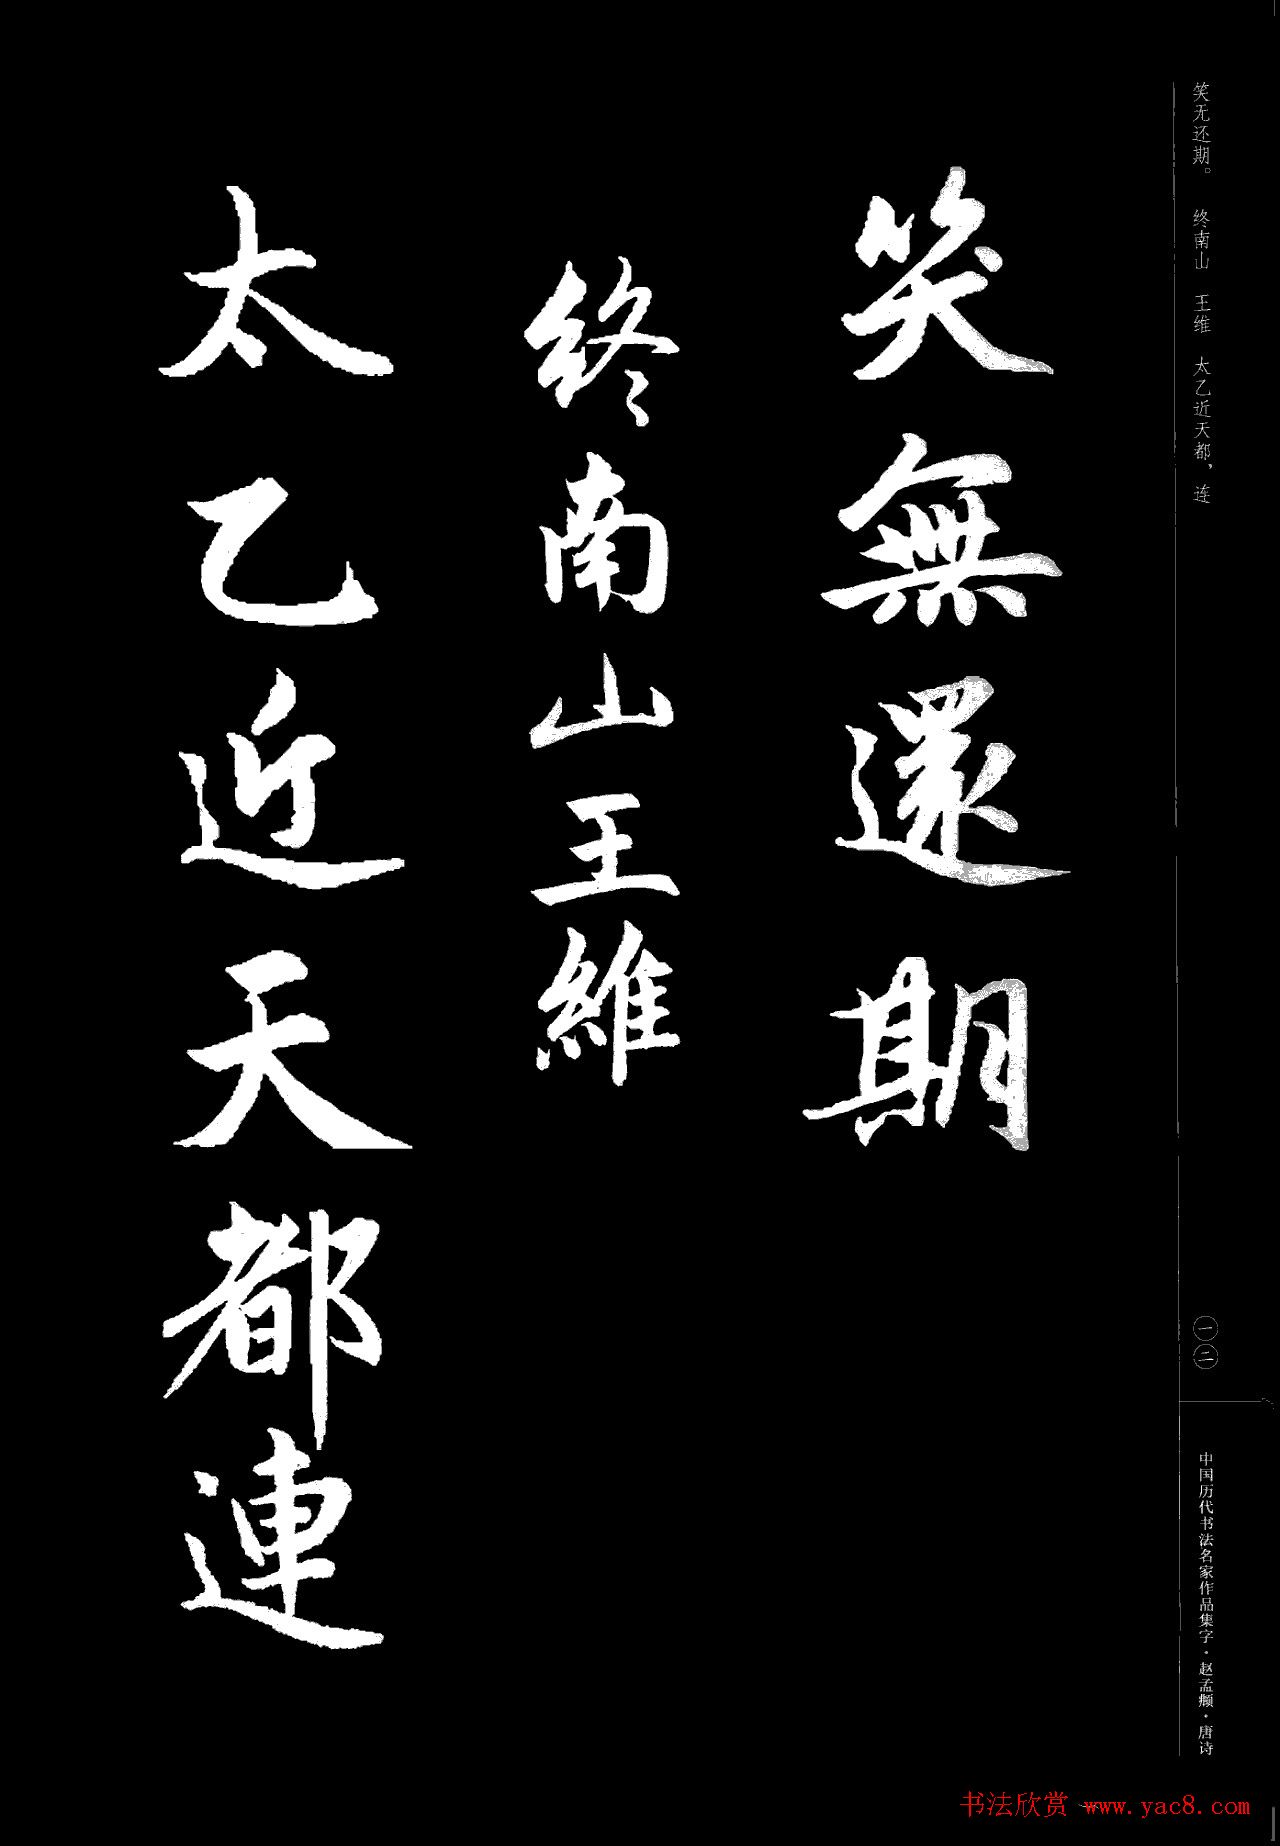 笑无还期。　终南山　王维　太乙近天都，连
笑無還期
終南山王維
太乙近天都連
一二
中国历代书法名家作品集字·赵孟頫·唐诗
书法欣赏 www.yac8.com